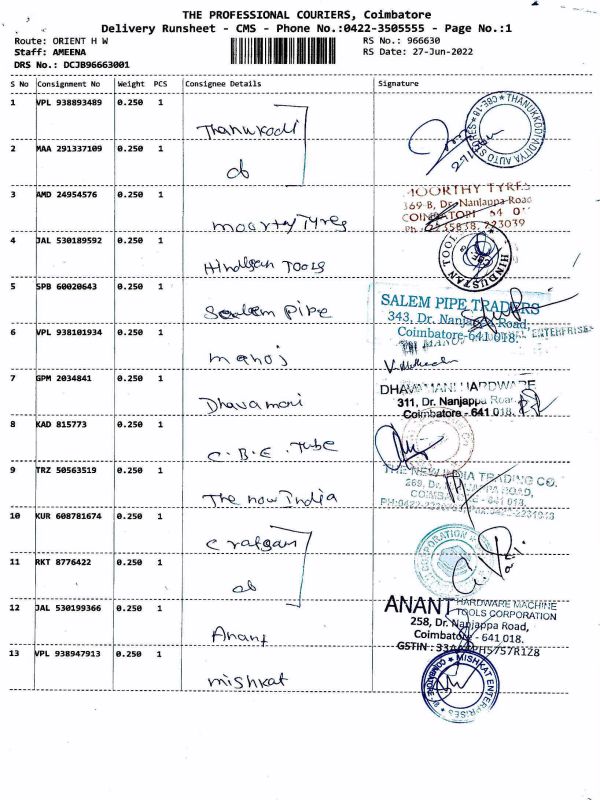 THE PROFESSIONAL COURIERS, Coimbatore
Delivery Runsheet - CMS - Phone No.:0422-3505555 - Page No.:1
Route: ORIENT H W
RS No.: 966630
Staff: AMEENA
RS Date: 27-Jun-2022
DRS No.: DCJB96663001
S No Consignment No Weight PCS Consignee Details Signature
1 VPL 938893489 0.250 1 Thanukodi
THANUKKODI ADITYA AUTO STORES CBE-18
2 MAA 291337109 0.250 1 do
3 AMD 24954576 0.250 1 moorty Tyres
MOORTHY TYRES
369-B, Dr. Nanjappa Road
4 JAL 530189592 0.250 1 Hindustan Tools
HINDUSTAN TOOL
5 SPB 60020643 0.250 1 Saalem Pipe
SALEM PIPE TRADERS
343, Dr. Nanjappa Road,
Coimbatore-641 018.
6 VPL 938101934 0.250 1 manoj
ENTERPRISES
7 GPM 2034841 0.250 1 Dhavamani
DHAVAMANI HARDWARE
311, Dr. Nanjappa Road
Coimbatore - 641 018.
8 KAD 815773 0.250 1 C.B.E. Tube
9 TRZ 50563519 0.250 1 The now India
THE NEW INDIA TRADING CO.
269, Dr. NANJAPPA ROAD,
10 KUR 608781674 0.250 1
CORPORATION
11 RKT 8776422 0.250 1 do
12 JAL 530199366 0.250 1 Anant
ANANT HARDWARE MACHINE
TOOLS CORPORATION
258, Dr. Nanjappa Road,
Coimbatore - 641 018.
GSTIN :
13 VPL 938947913 0.250 1 mishkat
MISHKAT ENTERPRISES